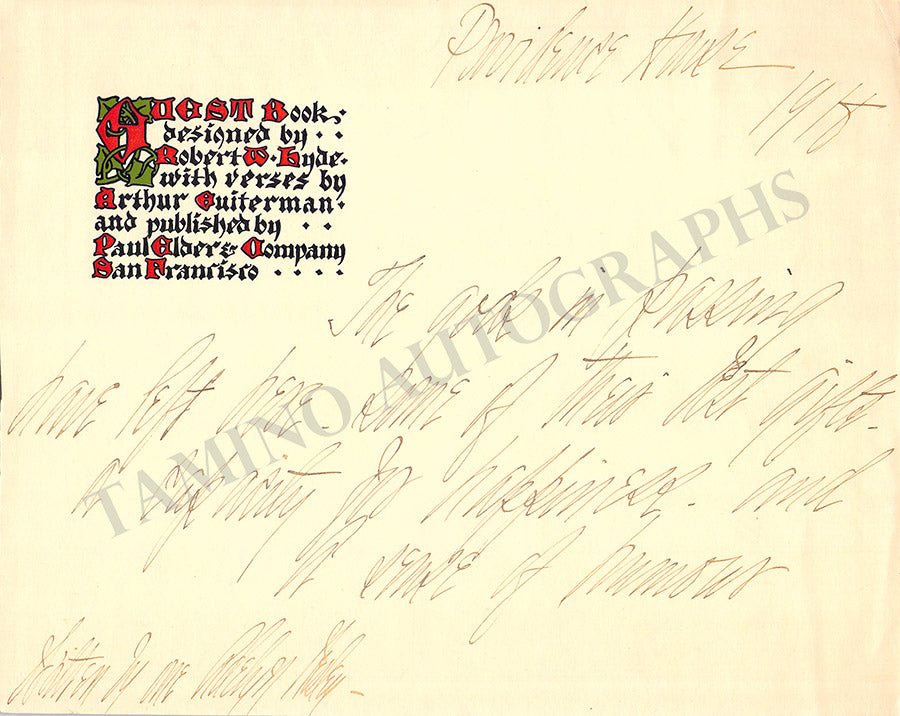 Providence House
1918
GUEST Book
designed by
Robert W. Hyde
with verses by
Arthur Guiterman
and published by
Paul Elder & Company
San Francisco
The gods in passing
have left here some of their best gifts.
A capacity for happiness - and
a sense of humour
Written by me
TAMINO AUTOGRAPHS